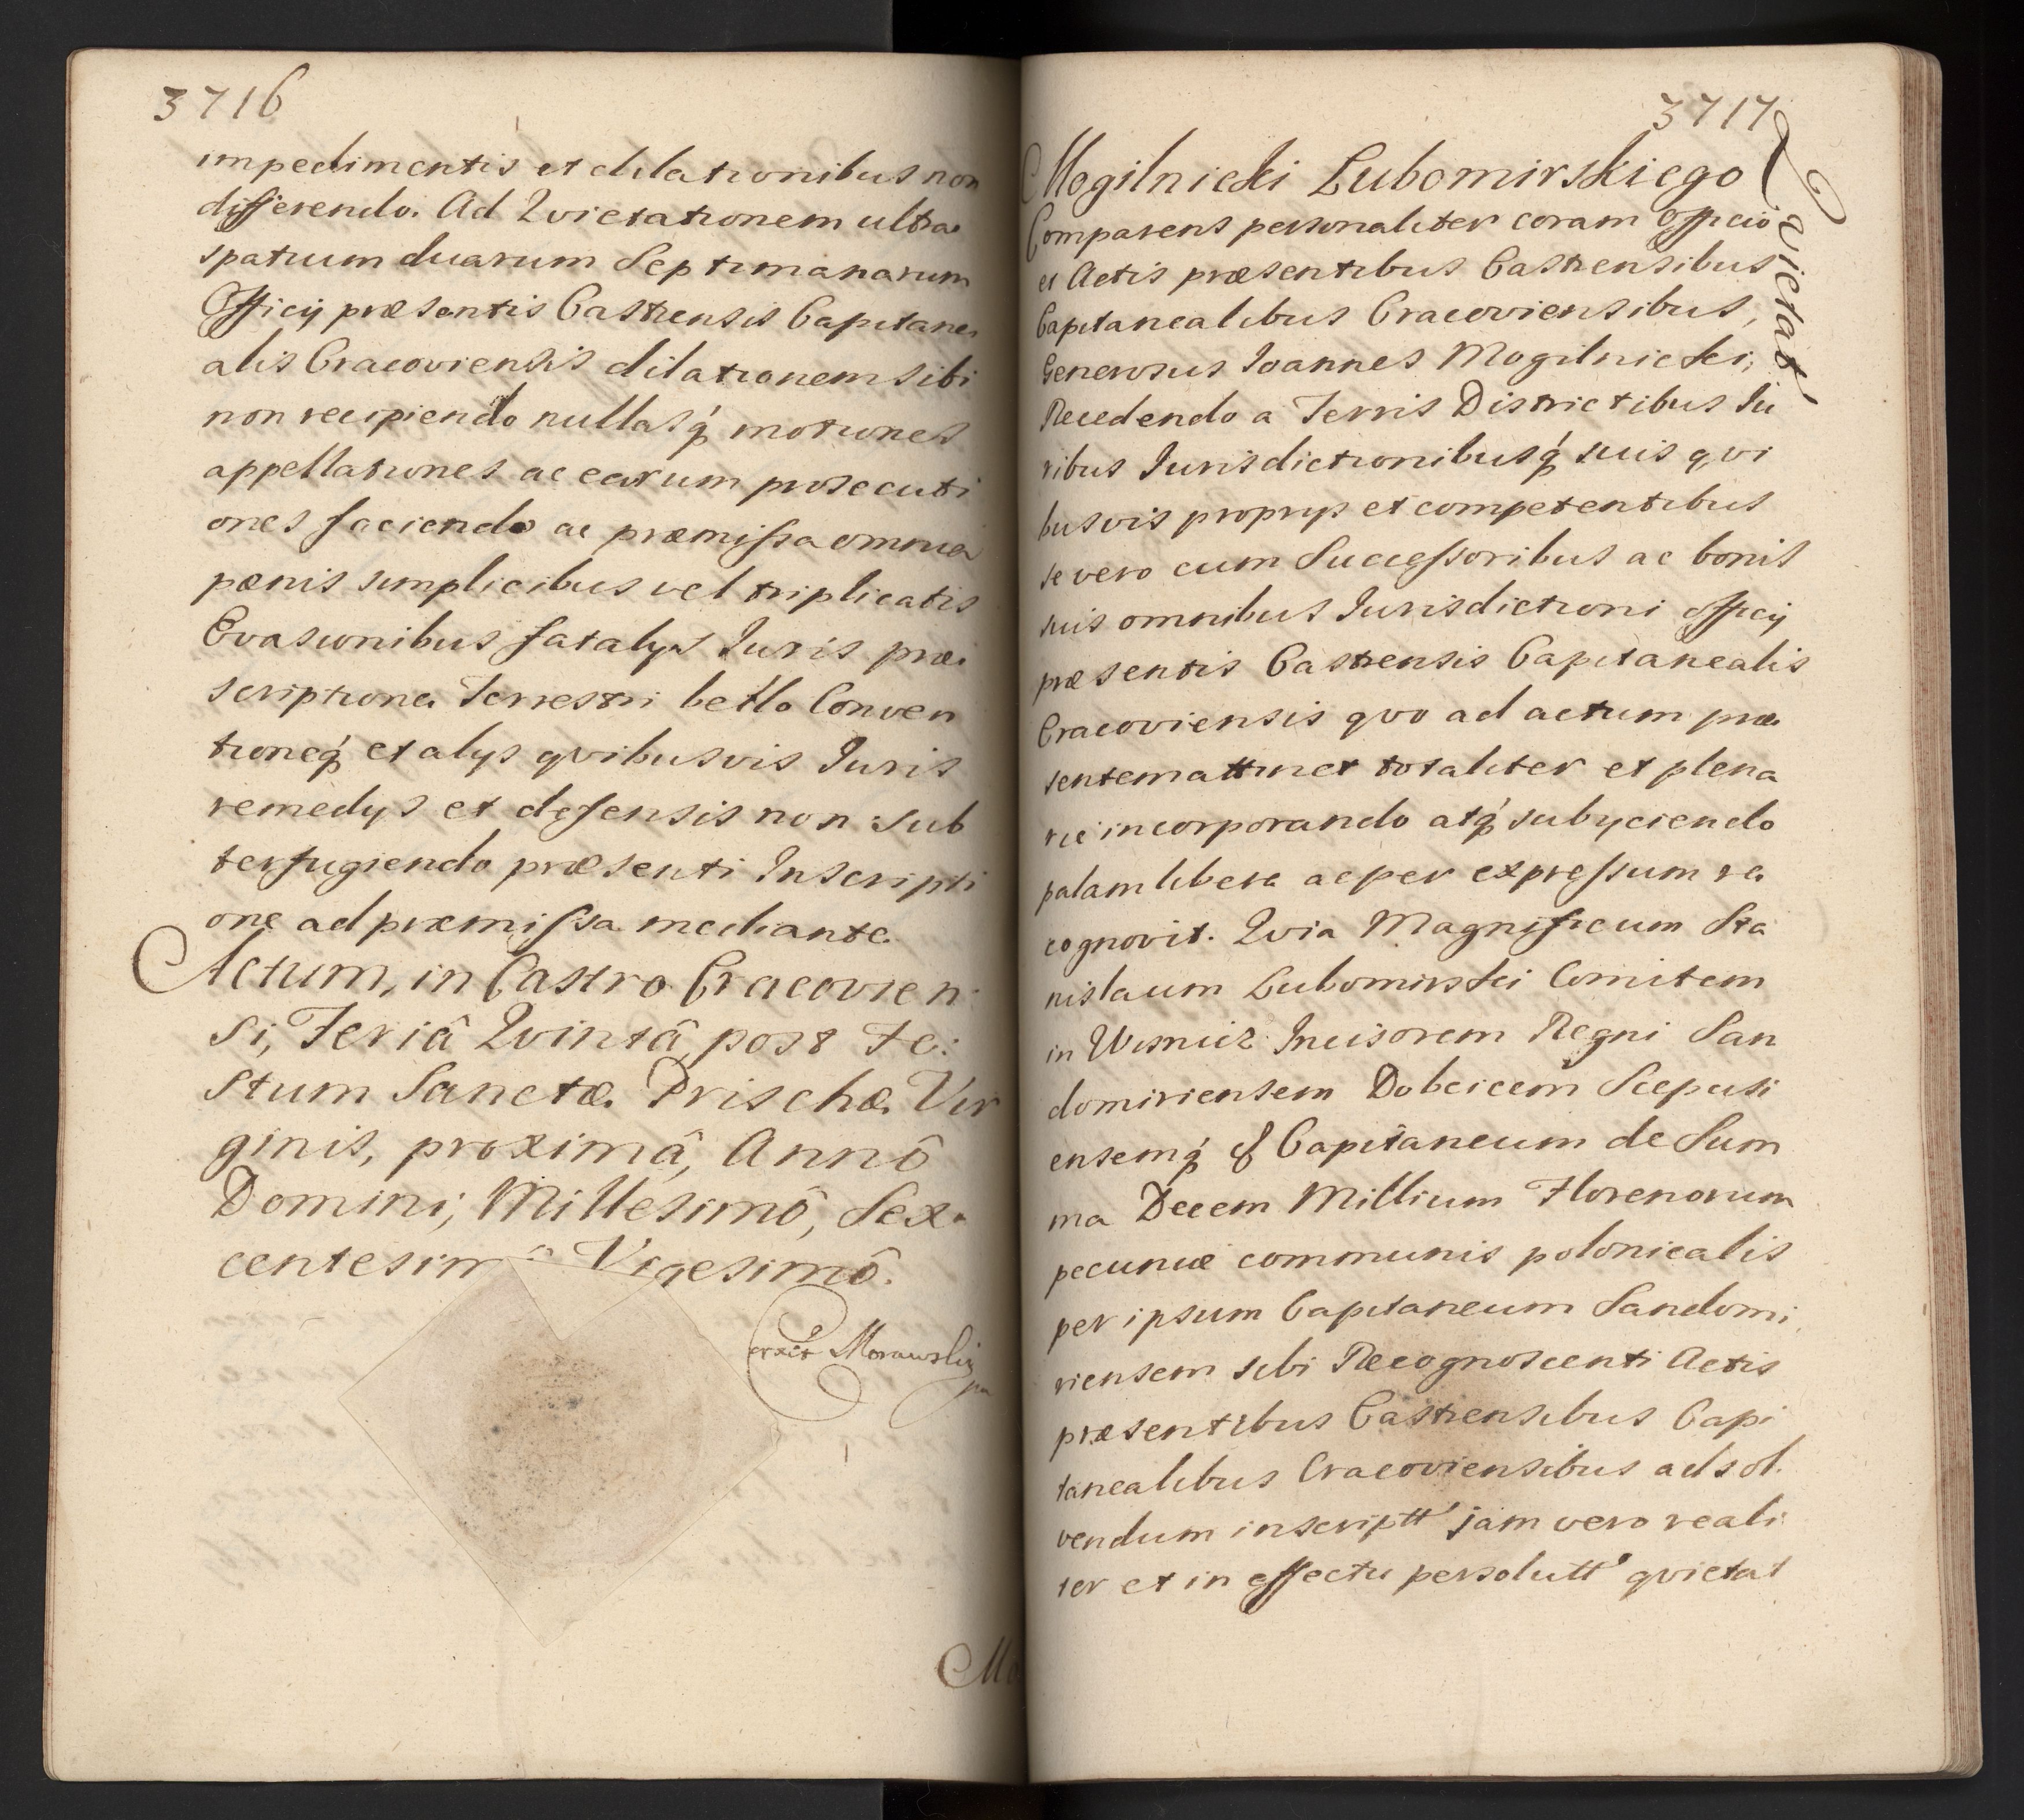 3716
impedimentis et dilationibus non
differendo. Ad Qvietationem ultra
spatium duarum Septimanarum
Officij præsentis Castrensis Capitane
alis Cracoviensis dilationem sibi
non recipiendo nullasq́ motiones
appellationes ac earum prosecuti
ones faciendo ac præmissa omnia
pænis simplicibus vel triplicatis
Evasionibus fatalys Iuris præ
scriptione Terrestri bello Conven
tioneq́ et alys qvibusvis Iuris
remedys et defensis non sub
terfugiendo præsenti Inscripti
one ad præmissa mediante.
Actum, in Castro Cracovien:
si, Feriâ Qvintâ post Fe:
stum Sanctæ Prischæ Vir
ginis, proximâ, Annô
Domini, Millesimô, Sex=
centesimô Vigesimô.
Morawski
Mo
3717
Qvietat
Mogilnicki Lubomirskiego
Comparens personaliter coram Officio
et Actis præsentibus Castrensibus
Capitanealibus Cracoviensibus,
Generosus Ioannes Mogilnicki,
Recedendo a Terris Districtibus Iu
ribus Iurisdictionibusq́ suis qvi
busvis proprys et competentibus
se vero cum Successoribus ac bonis
suis omnibus Iurisdictioni officij
præsentis Castrensis Capitanealis
Cracoviensis qvo ad actum præ
sentem attinet totaliter et plena
rie incorporando atq́ subyciendo
palam libere ac per expressum re
cognovit. Qvia Magnificum Sta
nislaum Lubomirski Comitem
in Wisnicz Incisorem Regni San
domiriensem Dobcicem Scepusi
ensemq́ & Capitaneum de Sum
ma Decem Millium Florenorum
pecuniæ communis polonicalis
per ipsum Capitaneum Sandomi
riensem sibi Recognoscenti Actis
præsentibus Castrensibus Capi
tanealibus Cracoviensibus ad sol
vendum inscriptt' jam vero reali
ter et in effectu persolutt' qvietat